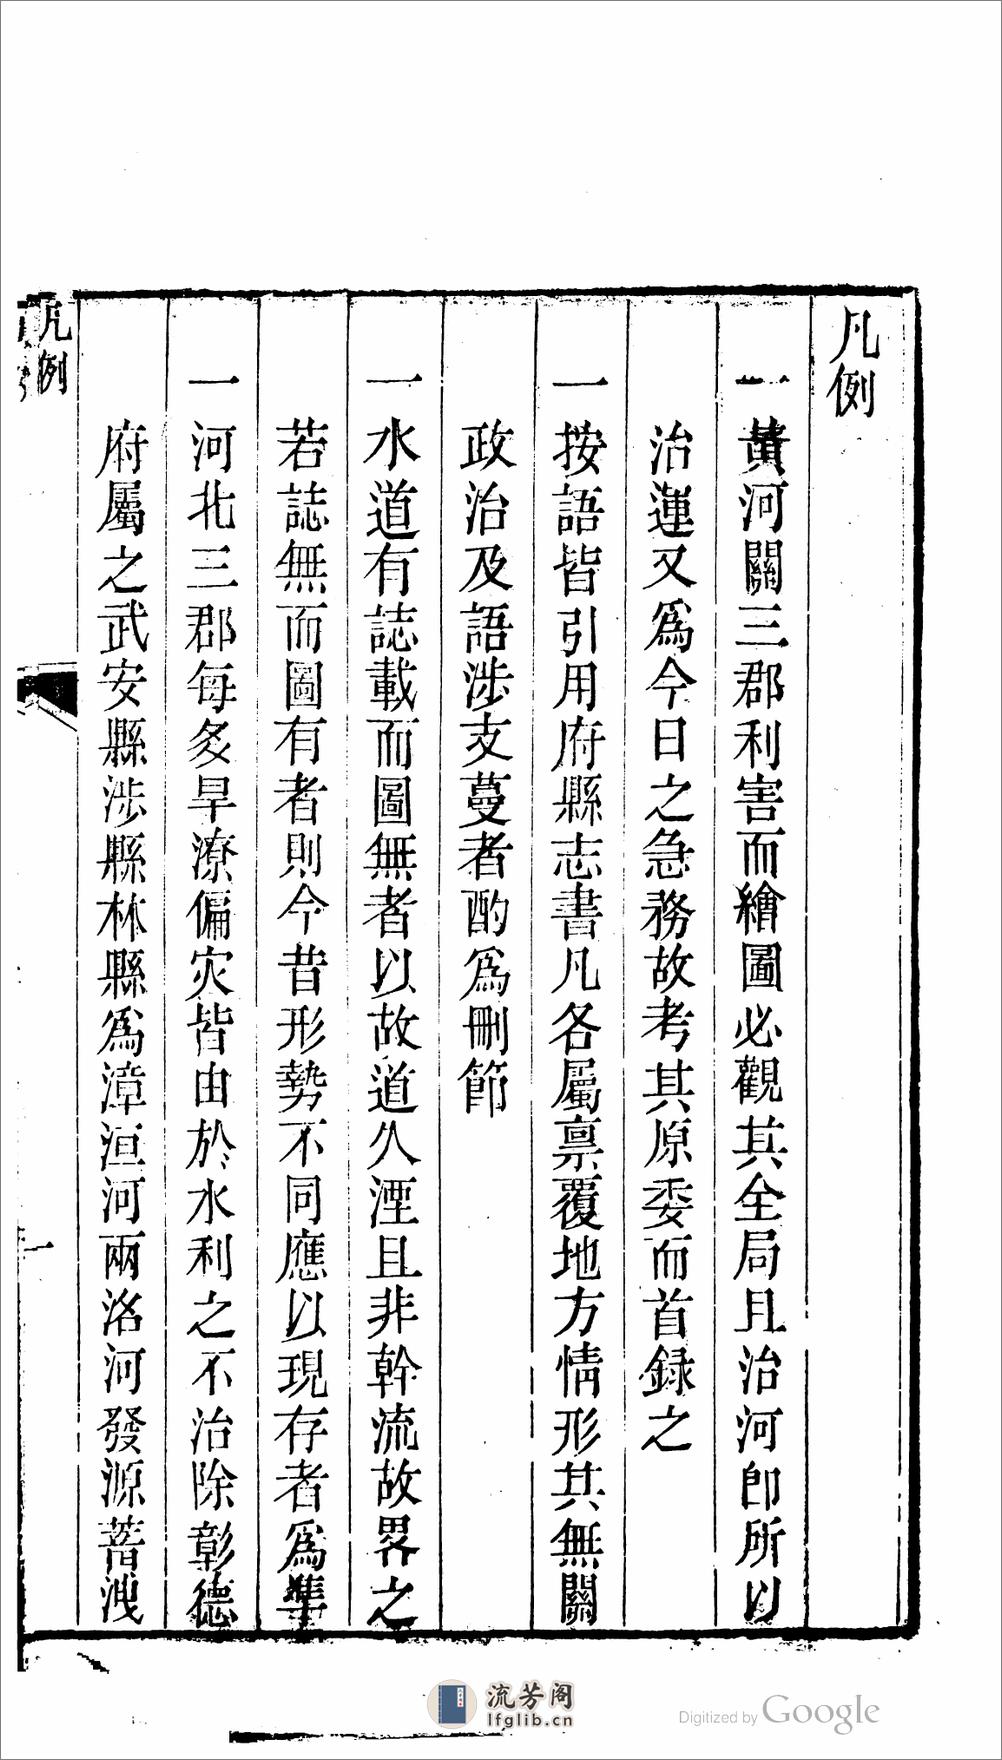 凡例
一黃河關三郡利害而繪圖必觀其全局且治河卽所以
治運又爲今日之急務故考其原委而首録之
一按語皆引用府縣志書凡各屬禀覆地方情形其無關
政治及語涉支蔓者酌爲刪節
一水道有誌載而圖無者以故道久湮且非幹流故畧之
若誌無而圖有者則今昔形勢不同應以現存者爲準
一河北三郡每多旱潦偏灾皆由於水利之不治除彰德
府屬之武安縣涉縣林縣爲漳洹河兩洺河發源蓄洩
凡例
一
流芳阁
lfglib.cn
Digitized by Google